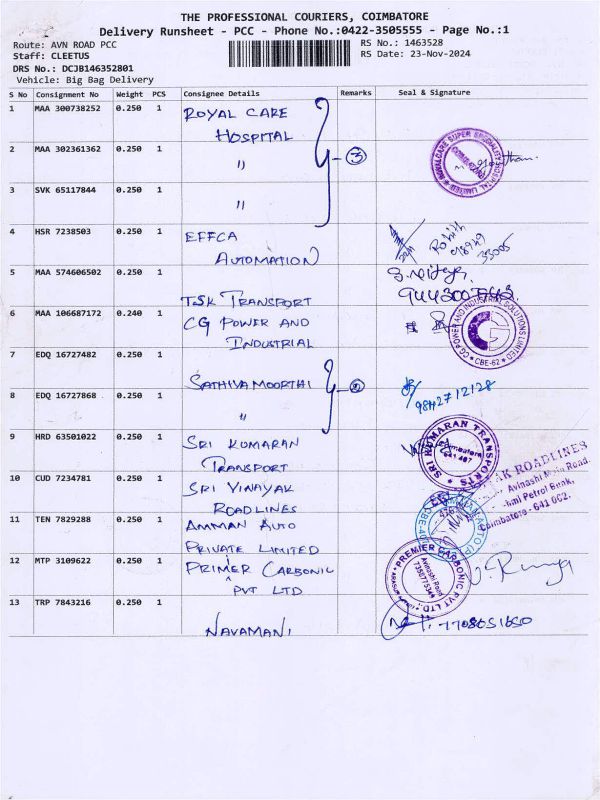 THE PROFESSIONAL COURIERS, COIMBATORE
Delivery Runsheet - PCC - Phone No.:0422-3505555 - Page No.:1
Route: AVN ROAD PCC
RS No.: 1463528
Staff: CLEETUS
RS Date: 23-Nov-2024
DRS No.: DCJB146352801
Vehicle: Big Bag Delivery
S No Consignment No Weight PCS Consignee Details Remarks Seal & Signature
1 MAA 300738252 0.250 1 ROYAL CARE
HOSPITAL
2 MAA 302361362 0.250 1 " 3
3 SVK 65117844 0.250 1 "
4 HSR 7238503 0.250 1 EFFCA
AUTOMATION
5 MAA 574606502 0.250 1
TSK TRANSPORT
6 MAA 106687172 0.240 1 CG POWER AND
INDUSTRIAL
CG POWER AND INDUSTRIAL SOLUTIONS LIMITED
CBE-62
7 EDQ 16727482 0.250 1
SATHIYAMOORTHI 2
8 EDQ 16727868 0.250 1 "
9842712128
9 HRD 63501022 0.250 1 SRI KUMARAN
TRANSPORT
SRI KUMARAN TRANSPORTS
10 CUD 7234781 0.250 1 SRI VINAYAK
ROADLINES
ROADLINES
Avinashi Main Road,
Petrol Bunk,
Coimbatore - 641 062.
11 TEN 7829288 0.250 1 AMMAN AUTO
PRIVATE LIMITED
12 MTP 3109622 0.250 1 PRIMER CARBONIC
PVT LTD
PREMIER CARBONIC PVT LTD
Avinashi Road
13 TRP 7843216 0.250 1
NAVAMANI
7708651650